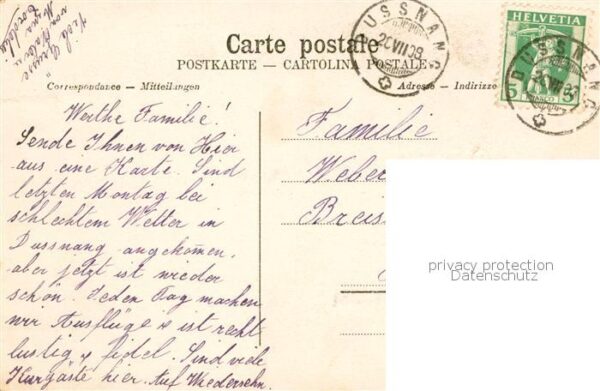 Carte postale
POSTKARTE — CARTOLINA POSTALE
Correspondance — Mitteilungen
Adresse — Indirizzo
HELVETIA
5 5
DUSSNANG
20 VII 09
DUSSNANG
Viele Grüsse
von
Werthe Familie!
Sende Ihnen von Hier
aus eine Karte. Sind
letzten Montag bei
schlechtem Wetter in
Dussnang angekomen,
aber jetzt ist wieder
schön. Jeden Tag machen
wir Ausflüge s ist recht
lustig u fidel. Sind viele
Kurgäste hier. Auf Wiedersehn.
Familie
Weber
Breis
privacy protection
Datenschutz